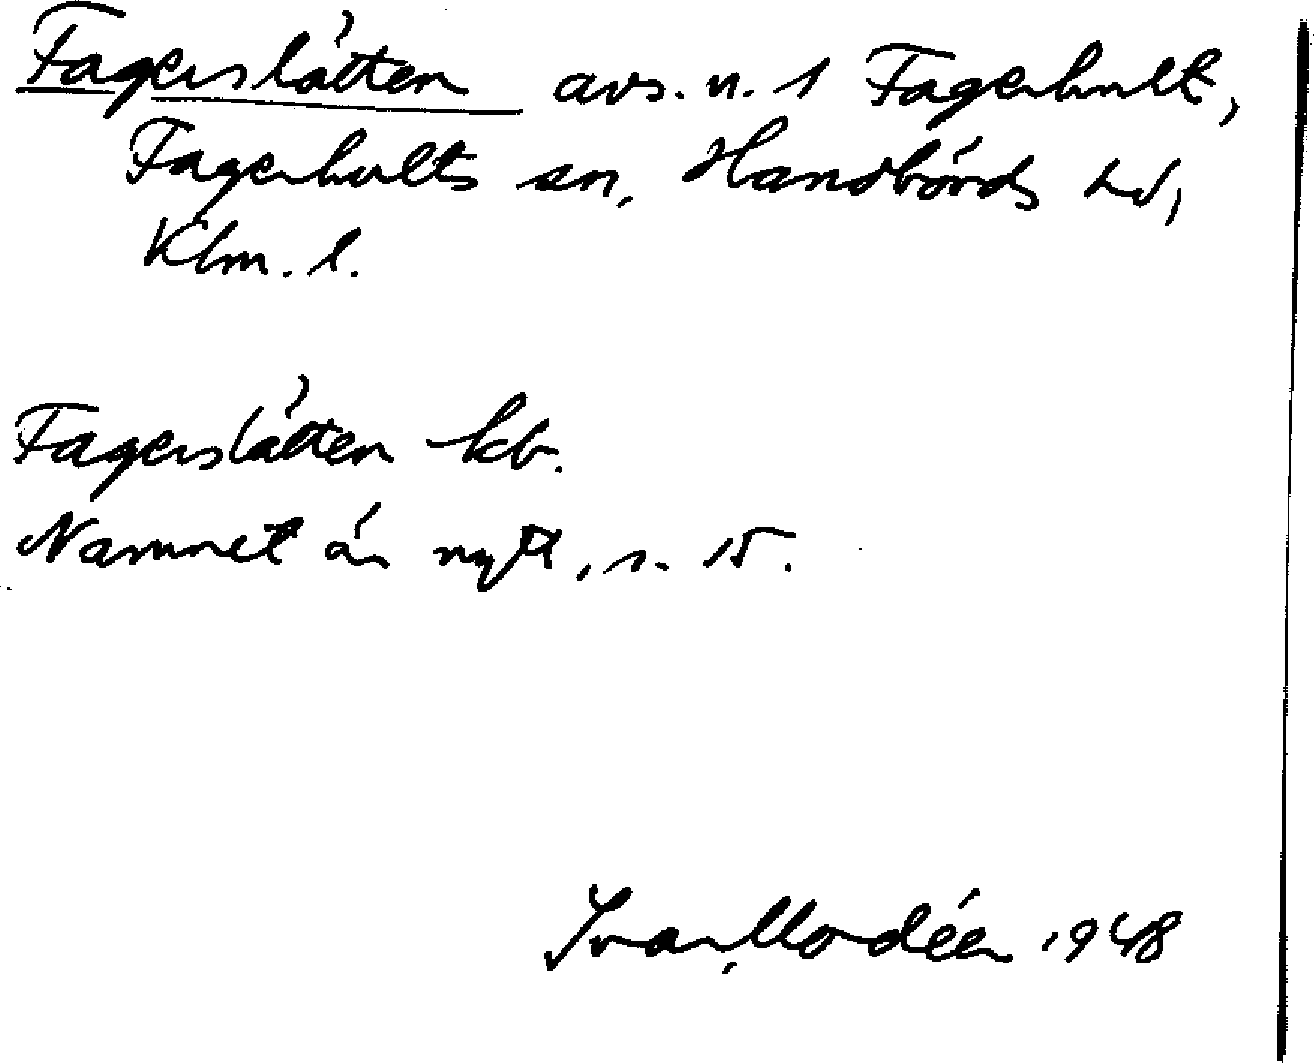 Fagerslätten avs. n. 1 Fagerhult,
Fagerhults sn, Handbörds hd,
Klm. l.
Fagerslätten kb.
Namnet är nytt, s. 15.
Ivar Modéer 1948